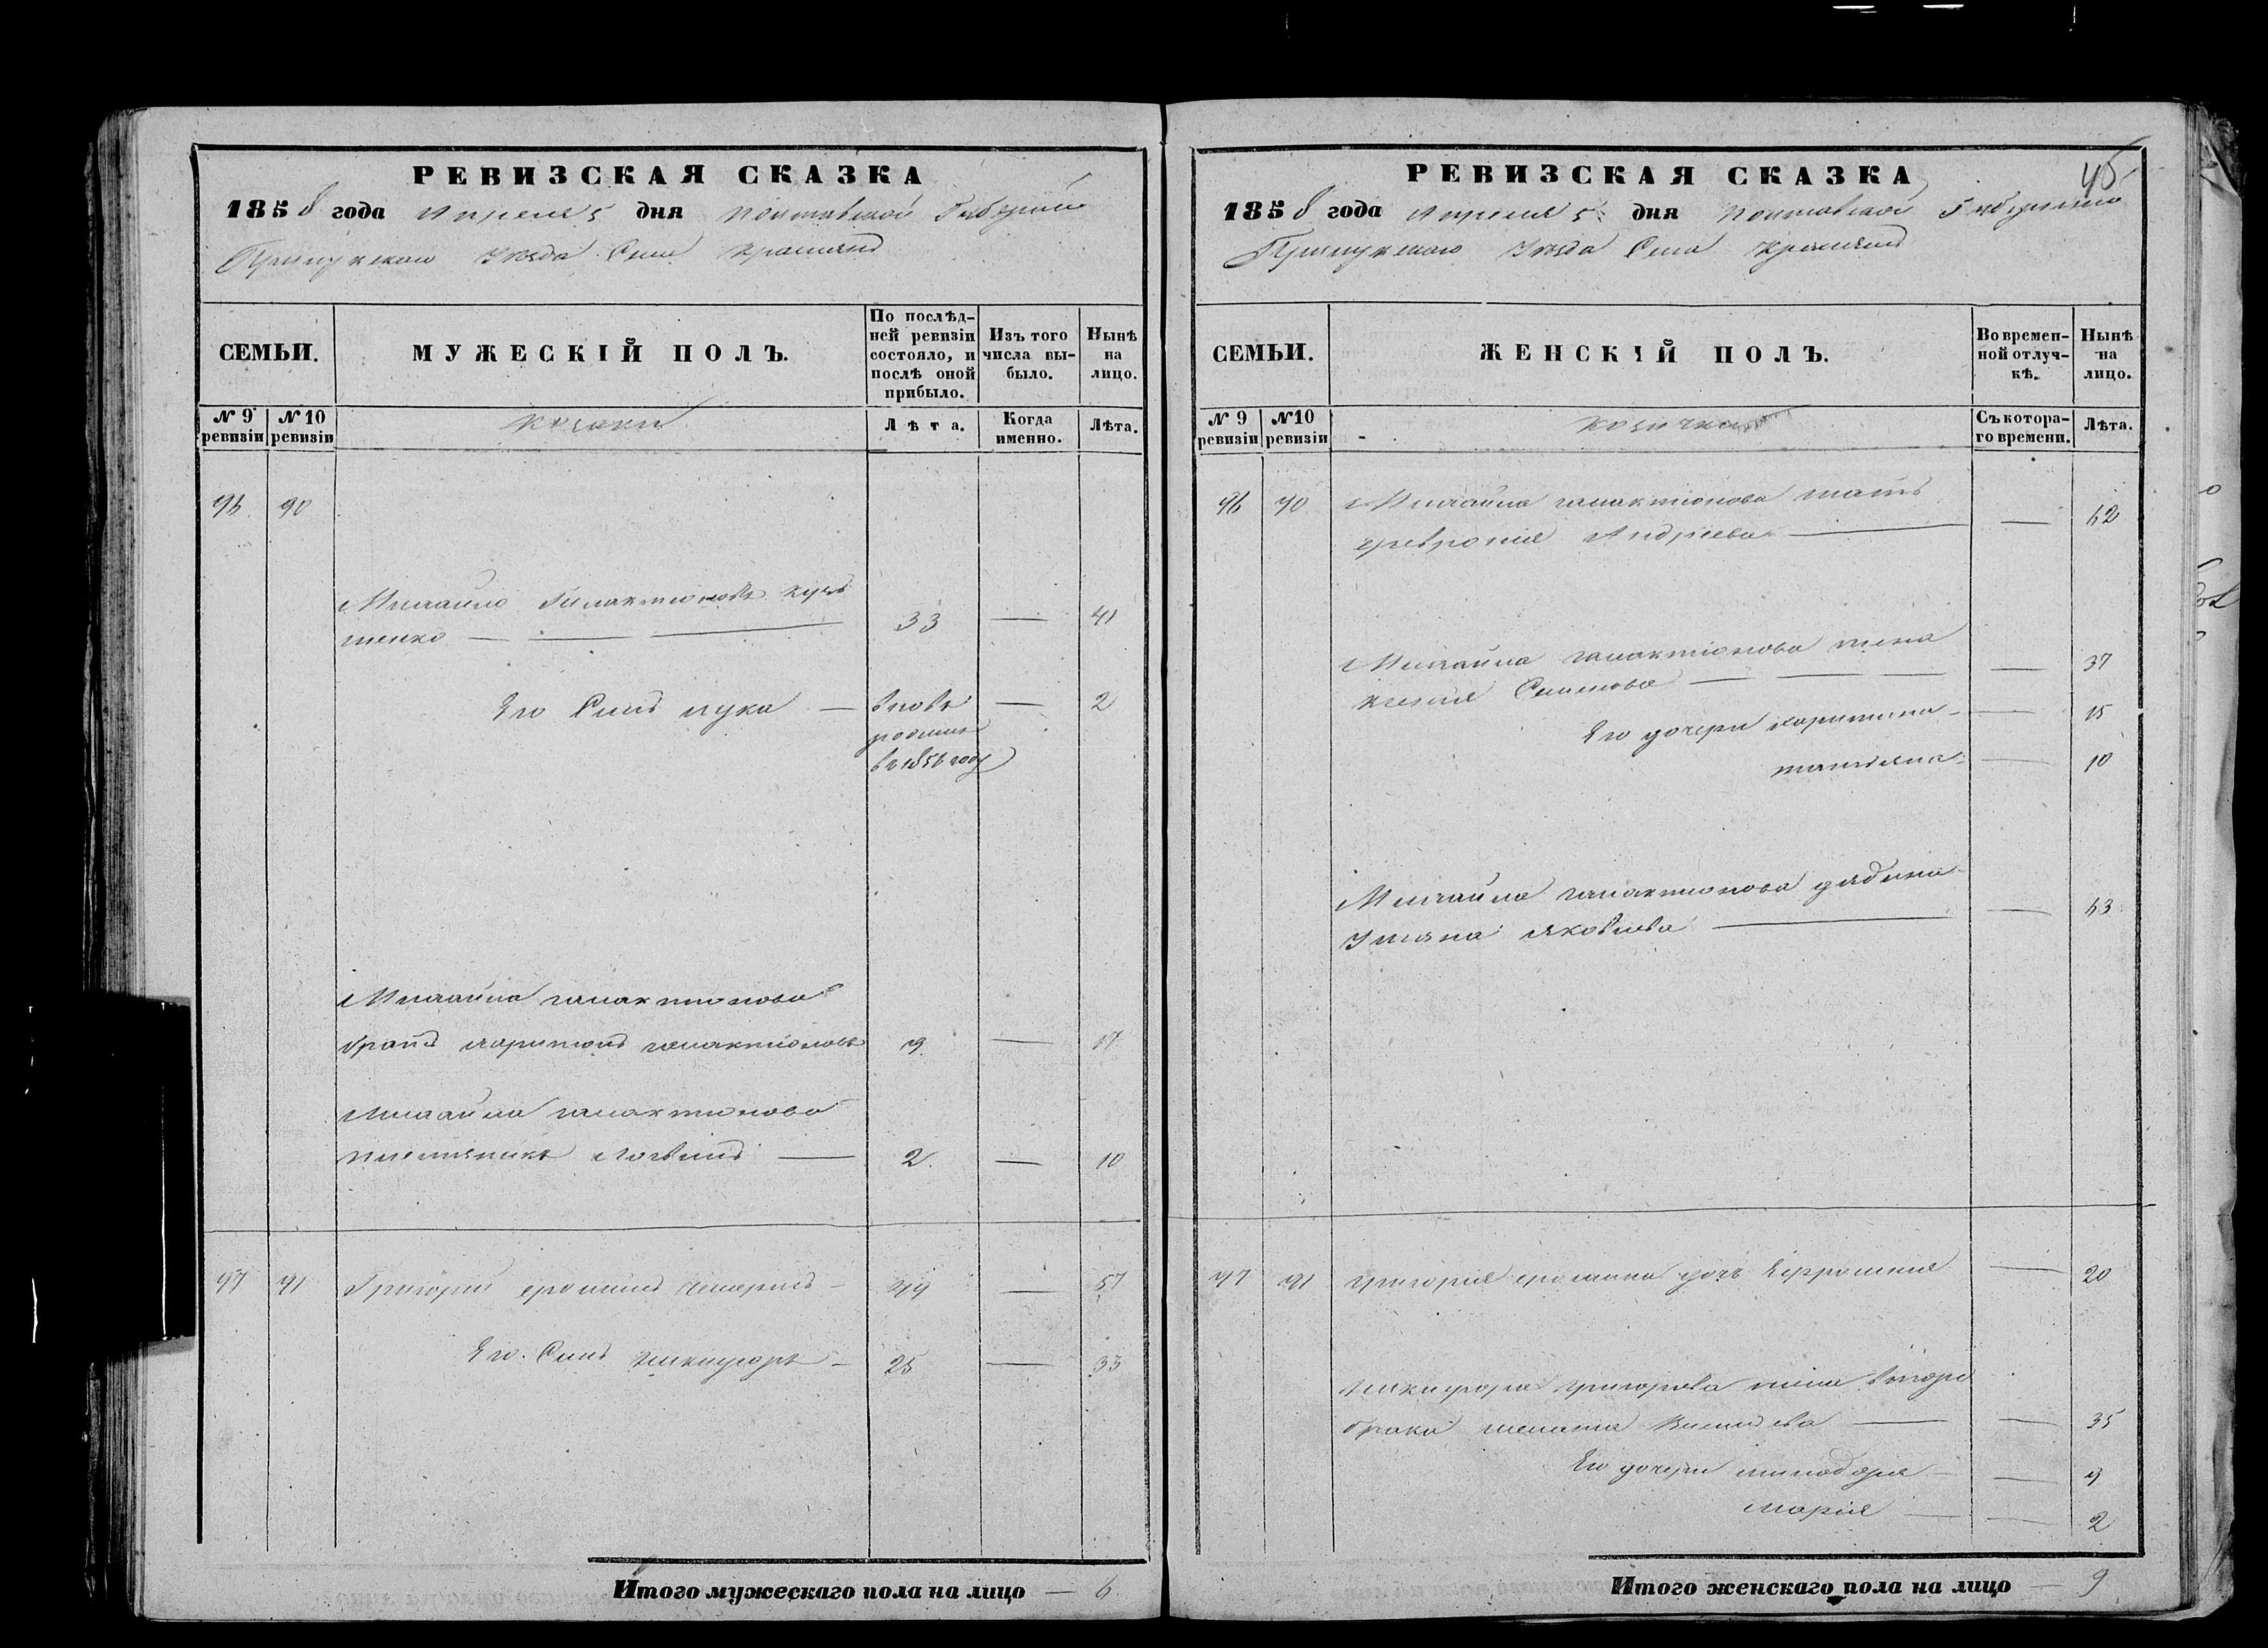 РЕВИЗСКАЯ СКАЗКА
1858 года Апреля 5 дня Полтавской Губернии
Прилукскаго Уезда Села Крапивнъ
СЕМЬИ.
МУЖЕСКІЙ ПОЛЪ.
По послѣд-
ней ревизіи
состояло, и
послѣ оной
прибыло.
Изъ того
числа вы-
было.
Нынѣ
на
лицо.
№ 9 ревизіи
№ 10 ревизіи
козаки
Лѣта.
Когда именно.
Лѣта.
96 90
Михайло Галактіоновъ
тенко 33 — 41
Его Синъ лука — вновь — 2
родился
въ 1856 году
Михайла галактионова
братъ харитонъ галактіоновъ 9 — 17
Михайла галактионова
племяникъ Логвинъ — 2 — 10
97 91 Григорій фоминъ — 49 — 57
Его Синъ никифоръ — 25 — 33
Итого мужескаго пола на лицо — 6
45
РЕВИЗСКАЯ СКАЗКА
1858 года Апреля 5 дня Полтавской Губернии
Прилукскаго Уезда Села
СЕМЬИ.
ЖЕНСКІЙ ПОЛЪ.
Во времен-
ной отлуч-
кѣ.
Нынѣ
на
лицо.
№ 9 ревизіи
№ 10 ревизіи
козачки
Съ котора-
го времени.
Лѣта.
96 90 Михайла галактіонова мать
феврония Андреева — — 62
Михайла галактіонова жена
Ксенія Семенова — — 37
Его дочери харитина — — 15
татіяна — — 10
Михайла галактионова дядина
Уляна яковлева — — 63
97 91 григорія фомина дочь Ефросинія — 20
никифора григорова жена втораго
брака Васильева — — 35
Его дочери минодора — — 9
Марія — — 2
Итого женскаго пола на лицо — 9